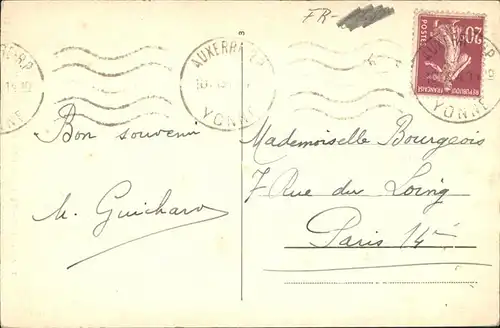 FR-
3
AUXERRE R.P.
YONNE
20c
POSTES
REPUBLIQUE FRANÇAISE
Bon souvenir
M. Guichard
Mademoiselle Bourgeois
7 Rue du Loing
Paris 14e